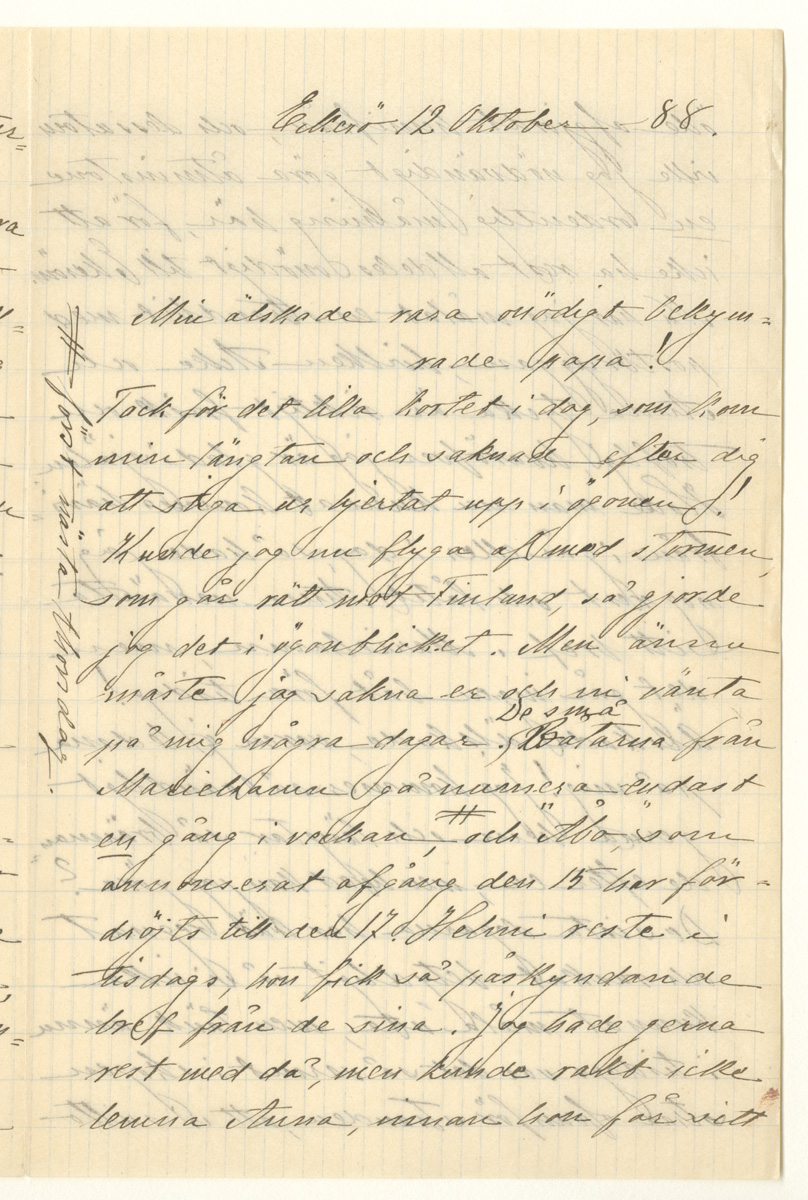 Eckerö 12 Oktober -88.
Min älskade rara onödigt bekym=
rade papa!
Tack för det lilla kortet i dag, som kom
min längtan och saknad efter dig
att stiga ur hjertat upp i ögonen!
Kunde jag nu flyga af med stormen,
som går rätt mot Finland, så gjorde
jag det i ögonblicket. Men ännu
måste jag sakna er och ni vänta
på mig några dagar. De små Båtarna från
Mariehamn gå numera endast
en gång i veckan, # och "Åbo", som
annonserat afgång den 15 har för=
dröjts till den 17. Helmi reste i
tisdags, hon fick så påskyndande
bref från de sina. Jag hade gerna
rest med då, men kunde rakt icke
lemna Anna, innan hon får sitt
# först nästa thorsdag.